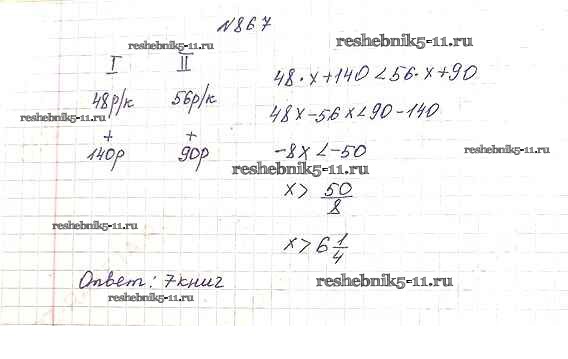 N867
reshebnik5-11.ru
reshebnik5-11.ru
I II
48·x+140<56·x+90
48р/к 56р/к
reshebnik5-11.ru
48x-56x<90-140
+ +
140р 90р
-8x<-50
reshebnik5-11.ru
reshebnik5-11.ru
x> 50/8
reshebnik5-11.ru
x>6 1/4
Ответ: 7книг
reshebnik5-11.ru
reshebnik5-11.ru